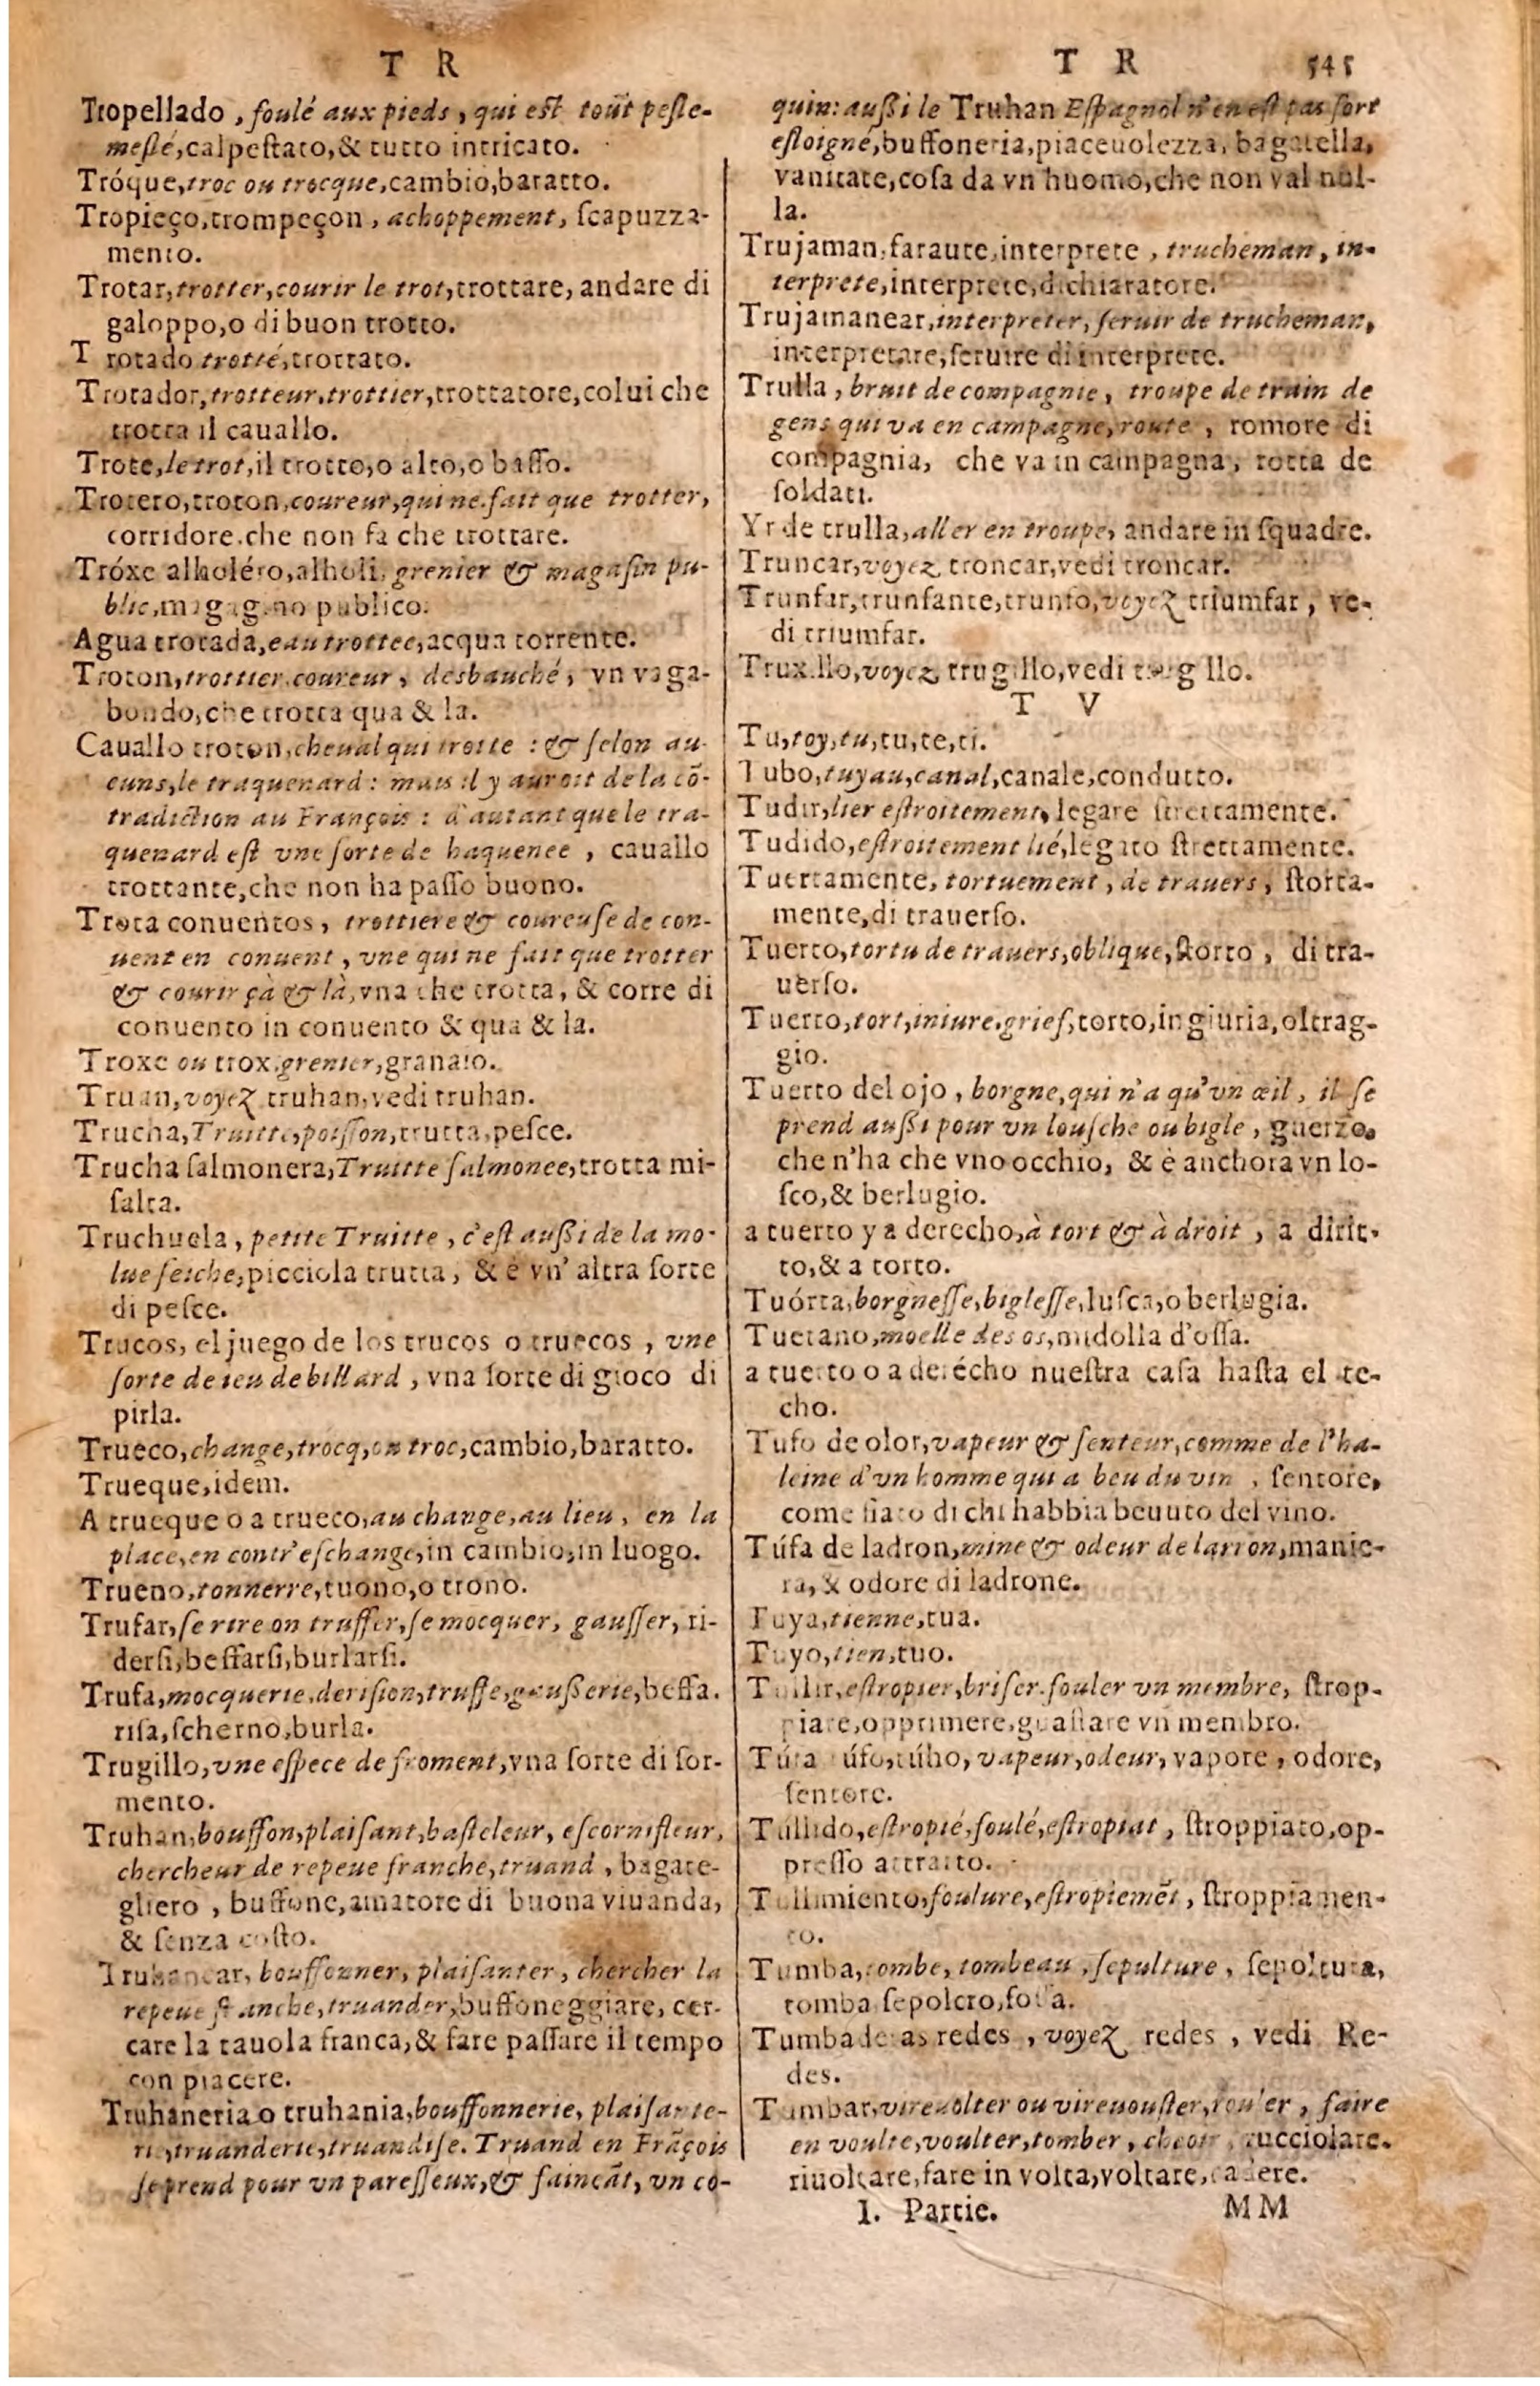 T R
Tropellado, foulé aux pieds, qui est tout pesle-
meslé, calpestato, & tutto intricato.
Tróque, troc ou trocque, cambio, baratto.
Tropieço, trompeçon, achoppement, scapuzza-
mento.
Trotar, trotter, courir le trot, trottare, andare di
galoppo, o di buon trotto.
T rotado trotté, trottato.
Trotador, trotteur, trottier, trottatore, colui che
trotta il cauallo.
Trote, le trot, il trotto, o alto, o basso.
Trotero, troton, coureur, qui ne fait que trotter,
corridore. che non fa che trottare.
Tróxe alholéro, alholi, grenier & magasin pu-
blic, magagino publico.
Agua trotada, eau trottee, acqua torrente.
Troton, trottier, coureur, desbauché, vn vaga-
bondo, che trotta qua & la.
Cauallo troton, cheual qui trotte : & selon au-
cuns, le traquenard : mais il y auroit de la cō-
tradiction au François : d'autant que le tra-
quenard est vne sorte de haquenee, cauallo
trottante, che non ha passo buono.
Trota conuentos, trottiere & coureuse de con-
uent en conuent, vne qui ne fait que trotter
& courir çà & là, vna che trotta, & corre di
conuento in conuento & qua & la.
Troxe ou trox, grenier, granaio.
Truan, voyez truhan, vedi truhan.
Trucha, Truitte, poisson, trutta, pesce.
Trucha salmonera, Truitte salmonee, trotta mi-
salta.
Truchuela, petite Truitte, c'est aussi de la mo-
lue seiche, picciola trutta, & è vn' altra sorte
di pesce.
Trucos, el juego de los trucos o truecos, vne
sorte de ieu de billard, vna sorte di gioco di
pirla.
Trueco, change, trocq, ou troc, cambio, baratto.
Trueque, idem.
A trueque o a trueco, au change, au lieu, en la
place, en contr'eschange, in cambio, in luogo.
Trueno, tonnerre, tuono, o trono.
Trufar, se rire on truffer, se mocquer, gausser, ri-
dersi, beffarsi, burlarsi.
Trufa, mocquerie, derision, truffe, gausserie, beffa.
risa, scherno, burla.
Trugillo, vne espece de froment, vna sorte di for-
mento.
Truhan, bouffon, plaisant, basteleur, escornifleur,
chercheur de repeue franche, truand, bagate-
gliero, buffone, amatore di buona viuanda,
& senza costo.
Truhanear, bouffonner, plaisanter, chercher la
repeue franche, truander, buffoneggiare, cer-
care la tauola franca, & fare passare il tempo
con piacere.
Truhaneria o truhania, bouffonnerie, plaisante-
rie, truanderie, truandise. Truand en Frāçois
se prend pour vn paresseux, & faineāt, vn co-
T R 545
quin: aussi le Truhan Espagnol n'en est pas fort
esloigné, buffoneria, piaceuolezza, bagatella,
vanitate, cosa da vn huomo, che non val nul-
la.
Trujaman, faraute, interprete, trucheman, in-
terprete, interprete, dichiaratore.
Trujamanear, interpreter, seruir de trucheman,
interpretare, seruire di interprete.
Trulla, bruit de compagnie, troupe de train de
gens qui va en campagne, route, romore di
compagnia, che va in campagna, rotta de
soldati.
Yr de trulla, aller en troupe, andare in squadre.
Truncar, voyez troncar, vedi troncar.
Trunfar, trunfante, trunfo, voyez triumfar, ve-
di triumfar.
Truxillo, voyez trugillo, vedi trugillo.
T V
Tu, toy, tu, tu, te, ti.
Tubo, tuyau, canal, canale, condutto.
Tudir, lier estroitement, legare strettamente.
Tudido, estroitement lié, legato strettamente.
Tuertamente, tortuement, de trauers, storta-
mente, di trauerso.
Tuerto, tortu de trauers, oblique, storto, di tra-
uerso.
Tuerto, tort, iniure, grief, torto, ingiuria, oltrag-
gio.
Tuerto del ojo, borgne, qui n'a qu'vn œil, il se
prend aussi pour vn lousche ou bigle, guerzo.
che n'ha che vno occhio, & è anchora vn lo-
sco, & berlugio.
a tuerto y a derecho, à tort & à droit, a dirit-
to, & a torto.
Tuórta, borgnesse, biglesse, lusca, o berlugia.
Tuetano, moelle des os, midolla d'ossa.
a tuerto o a derécho nuestra casa hasta el te-
cho.
Tufo de olor, vapeur & senteur, comme de l'ha-
leine d'vn homme qui a beu du vin, sentore,
come fiato di chi habbia beuuto del vino.
Túfa de ladron, mine & odeur de larron, manie-
ra, & odore di ladrone.
Tuya, tienne, tua.
Tuyo, tien, tuo.
Tullir, estropier, briser, fouler vn membre, strop-
piare, opprimere, guastare vn membro.
Túfa úfo, túho, vapeur, odeur, vapore, odore,
sentore.
Tullido, estropié, foulé, estropiat, stroppiato, op-
presso attratto.
Tullimiento, foulure, estropiemēt, stroppiamen-
to.
Tumba, tombe, tombeau, sepulture, sepoltura,
tomba sepolcro, fossa.
Tumbade las redes, voyez redes, vedi Re-
des.
Tumbar, vireuolter ou vireuouster, rouler, faire
en voulte, voulter, tomber, cheoir, rucciolare.
riuoltare, fare in volta, voltare, cadere.
I. Partie. MM